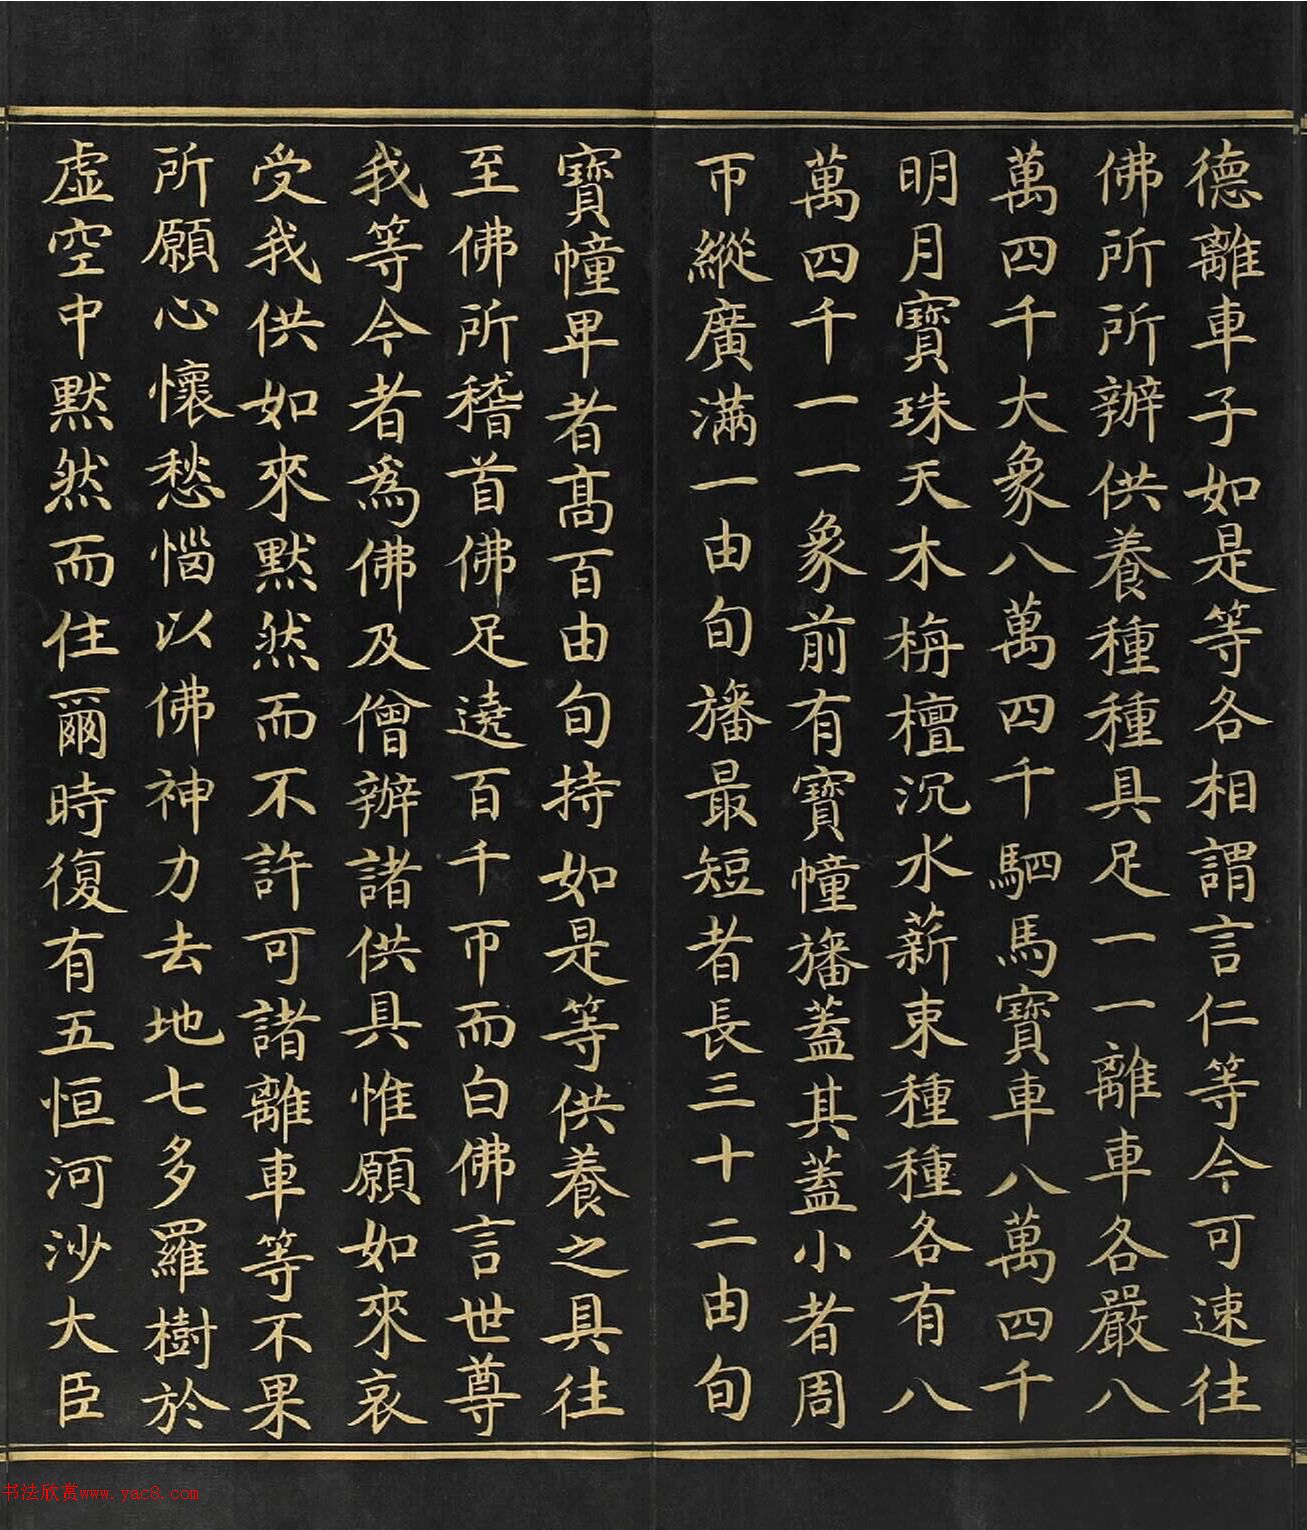 德離車子如是等各相謂言仁等今可速往
佛所所辦供養種種具足一一離車各嚴八
萬四千大象八萬四千駟馬寶車八萬四千
明月寶珠天木栴檀沉水薪束種種各有八
萬四千一一象前有寶幢旛蓋其蓋小者周
帀縱廣滿一由旬旛最短者長三十二由旬
寶幢卑者髙百由旬持如是等供養之具往
至佛所稽首佛足遶百千帀而白佛言世尊
我等今者為佛及僧辦諸供具惟願如來哀
受我供如來默然而不許可諸離車等不果
所願心懷愁惱以佛神力去地七多羅樹於
虛空中默然而住爾時復有五恒河沙大臣
书法欣赏www.yac8.com